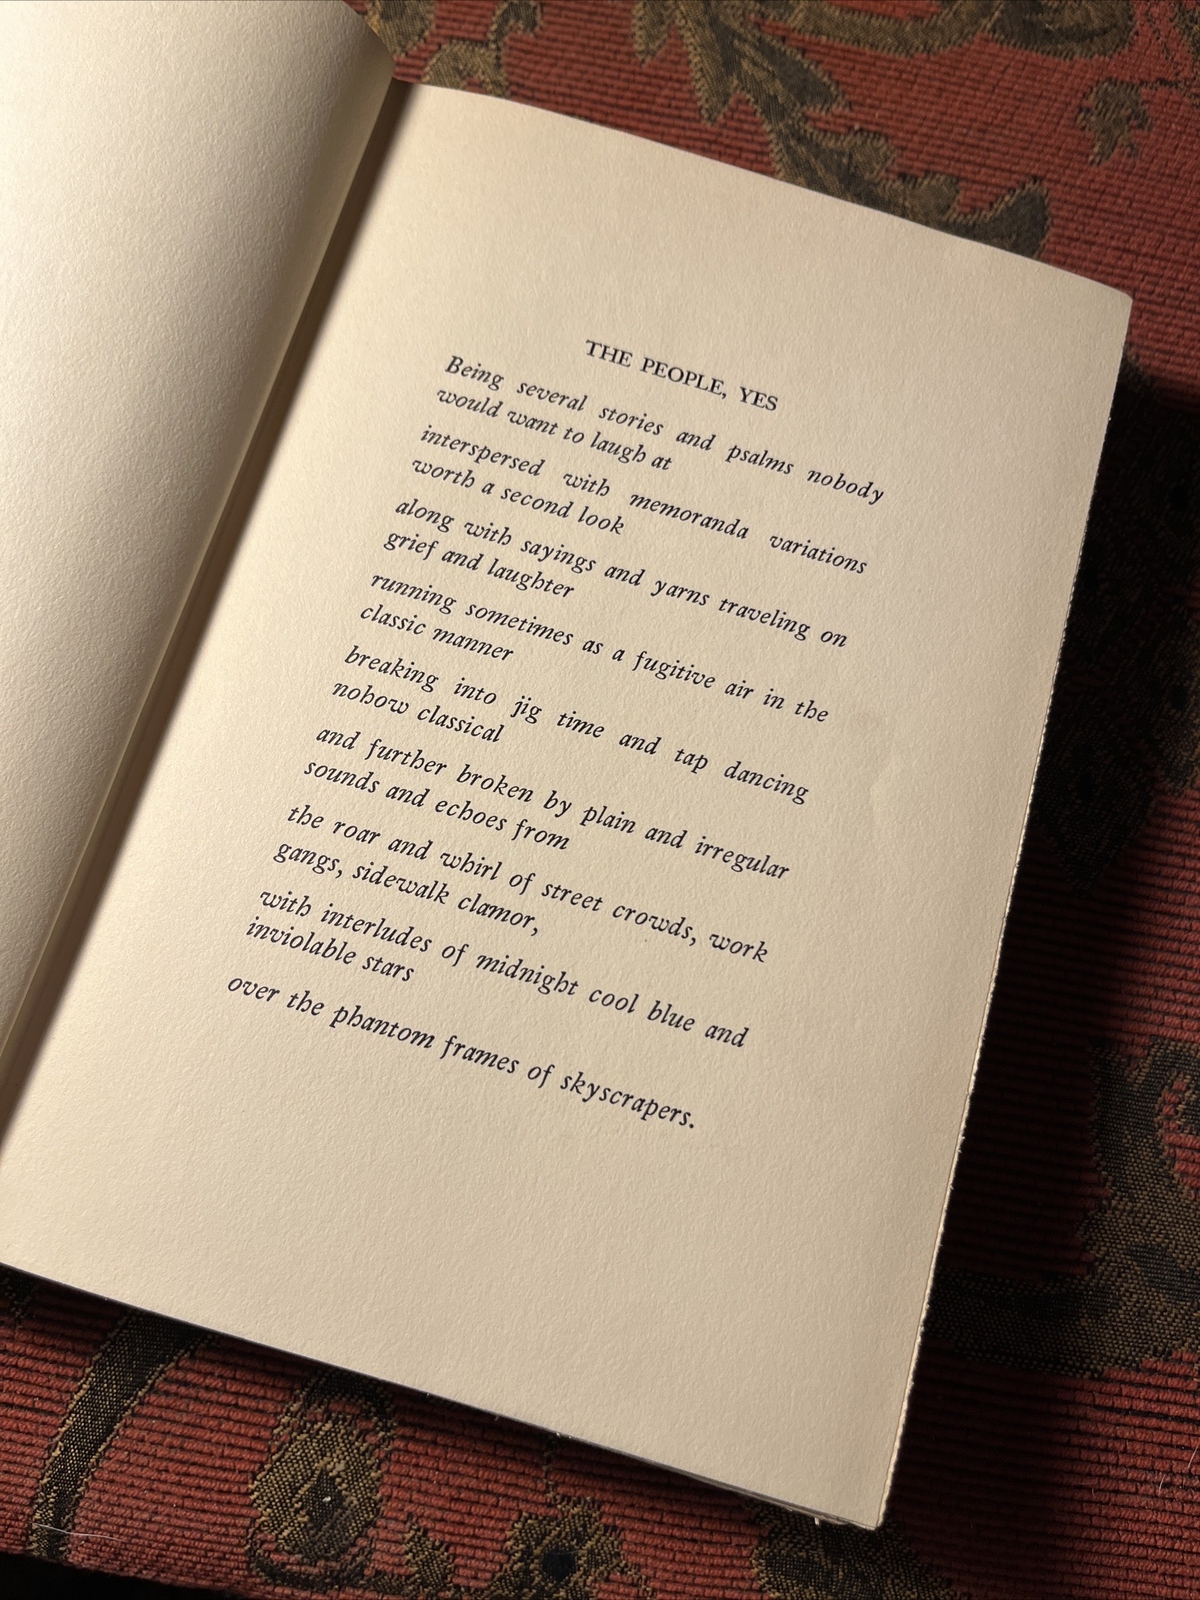 THE PEOPLE, YES
Being several stories and psalms nobody
would want to laugh at
interspersed with memoranda variations
worth a second look
along with sayings and yarns traveling on
grief and laughter
running sometimes as a fugitive air in the
classic manner
breaking into jig time and tap dancing
nohow classical
and further broken by plain and irregular
sounds and echoes from
the roar and whirl of street crowds, work
gangs, sidewalk clamor,
with interludes of midnight cool blue and
inviolable stars
over the phantom frames of skyscrapers.